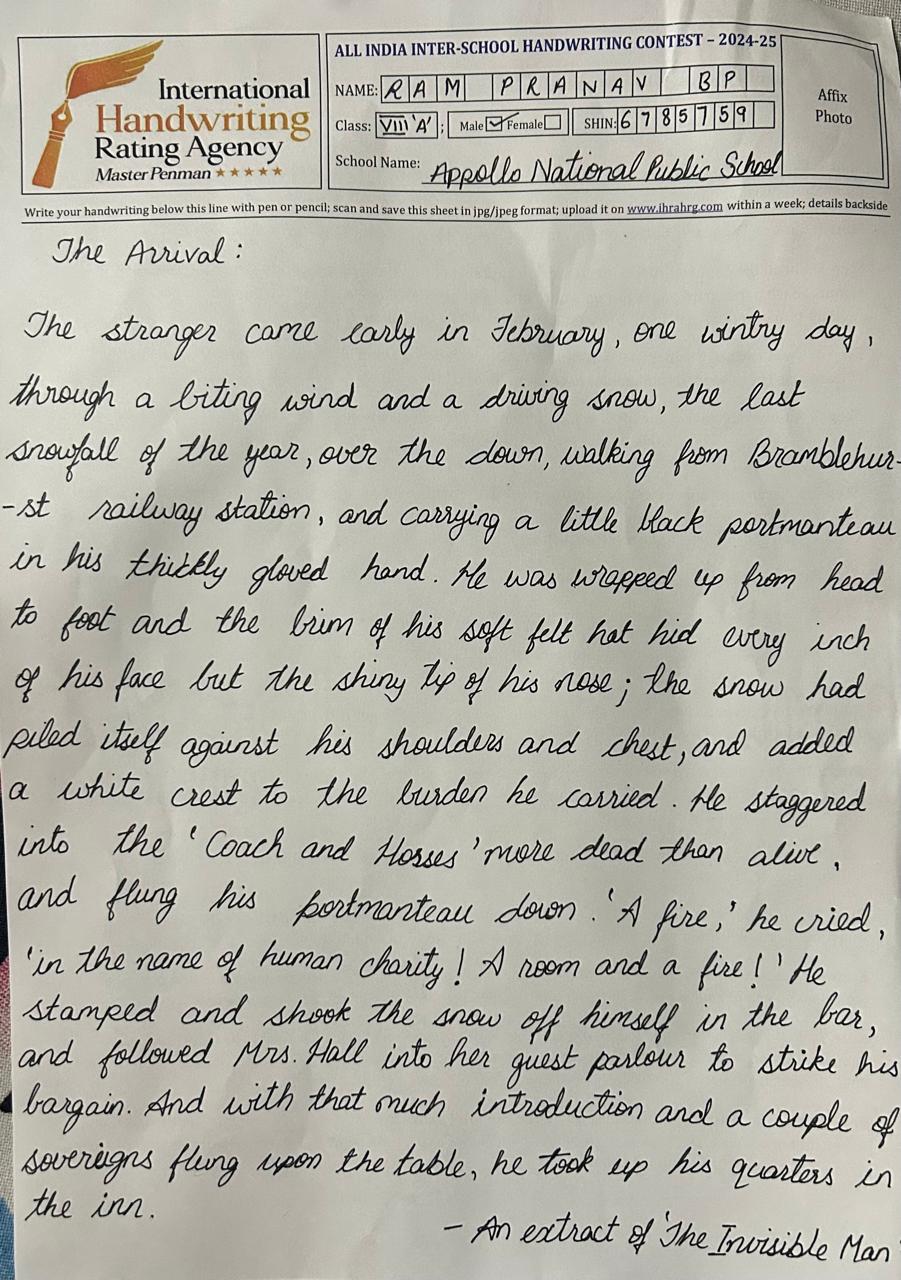 International
Handwriting
Rating Agency
Master Penman ★★★★★
ALL INDIA INTER-SCHOOL HANDWRITING CONTEST – 2024-25
NAME: RAM PRANAV BP
Class: VIII 'A' ; Male ✓ Female SHIN: 6785759
School Name: Appollo National Public School
Affix
Photo
Write your handwriting below this line with pen or pencil; scan and save this sheet in jpg/jpeg format; upload it on www.ihrahrg.com within a week; details backside
The Arrival:
The stranger came early in February, one wintry day,
through a biting wind and a driving snow, the last
snowfall of the year, over the down, walking from Bramblehur-
-st railway station, and carrying a little black portmanteau
in his thickly gloved hand. He was wrapped up from head
to foot and the brim of his soft felt hat hid every inch
of his face but the shiny tip of his nose; the snow had
piled itself against his shoulders and chest, and added
a white crest to the burden he carried. He staggered
into the 'Coach and Horses' more dead than alive,
and flung his portmanteau down. 'A fire,' he cried,
'in the name of human charity! A room and a fire!' He
stamped and shook the snow off himself in the bar,
and followed Mrs. Hall into her guest parlour to strike his
bargain. And with that much introduction and a couple of
sovereigns flung upon the table, he took up his quarters in
the inn.
- An extract of 'The Invisible Man'